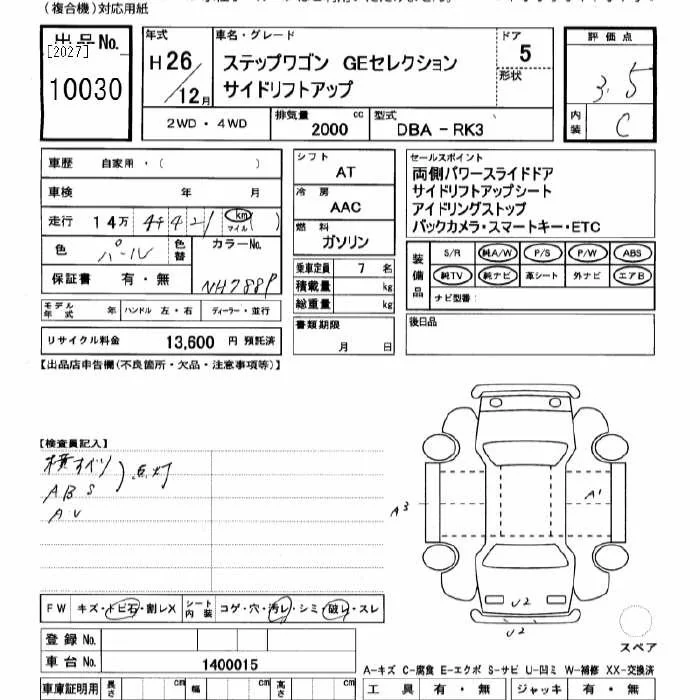 (複合機)対応用紙
出品No.
[2027]
10030
年式
H26/12月
車名・グレード
ステップワゴン GEセレクション
サイドリフトアップ
ドア
5
形状
評価点
3.5
内装
C
2WD・4WD
排気量
2000 cc
型式
DBA-RK3
車歴 自家用・( )
車検 年 月
走行 14万 4千421 km マイル ( )
色 パール 色替 カラーNo.
NH788P
保証書 有・無
モデル年式 年 ハンドル 左・右 ディーラー・並行
リサイクル料金 13,600 円 預託済
シフト
AT
冷房
AAC
燃料
ガソリン
乗車定員 7 名
積載量 kg
総重量 kg
書類期限
月 日
セールスポイント
両側パワースライドドア
サイドリフトアップシート
アイドリングストップ
バックカメラ・スマートキー・ETC
装備品
S/R 純A/W P/S P/W ABS
純TV 純ナビ 革シート 外ナビ エアB
ナビ型番:
後日品
【出品店申告欄(不良箇所・欠品・注意事項等)】
【検査員記入】
横すべり
ABS
AV
点灯
A3
A1
U2
U2
スペア
FW キズ・トビ石・割レX シート内装 コゲ・穴・汚レ・シミ・破レ・スレ
登録No.
車台No. 1400015
車庫証明用 長さ cm 幅 cm 高さ cm
A-キズ C-腐食 E-エクボ S-サビ U-凹ミ W-補修 XX-交換済
工具 有・無 ジャッキ 有・無